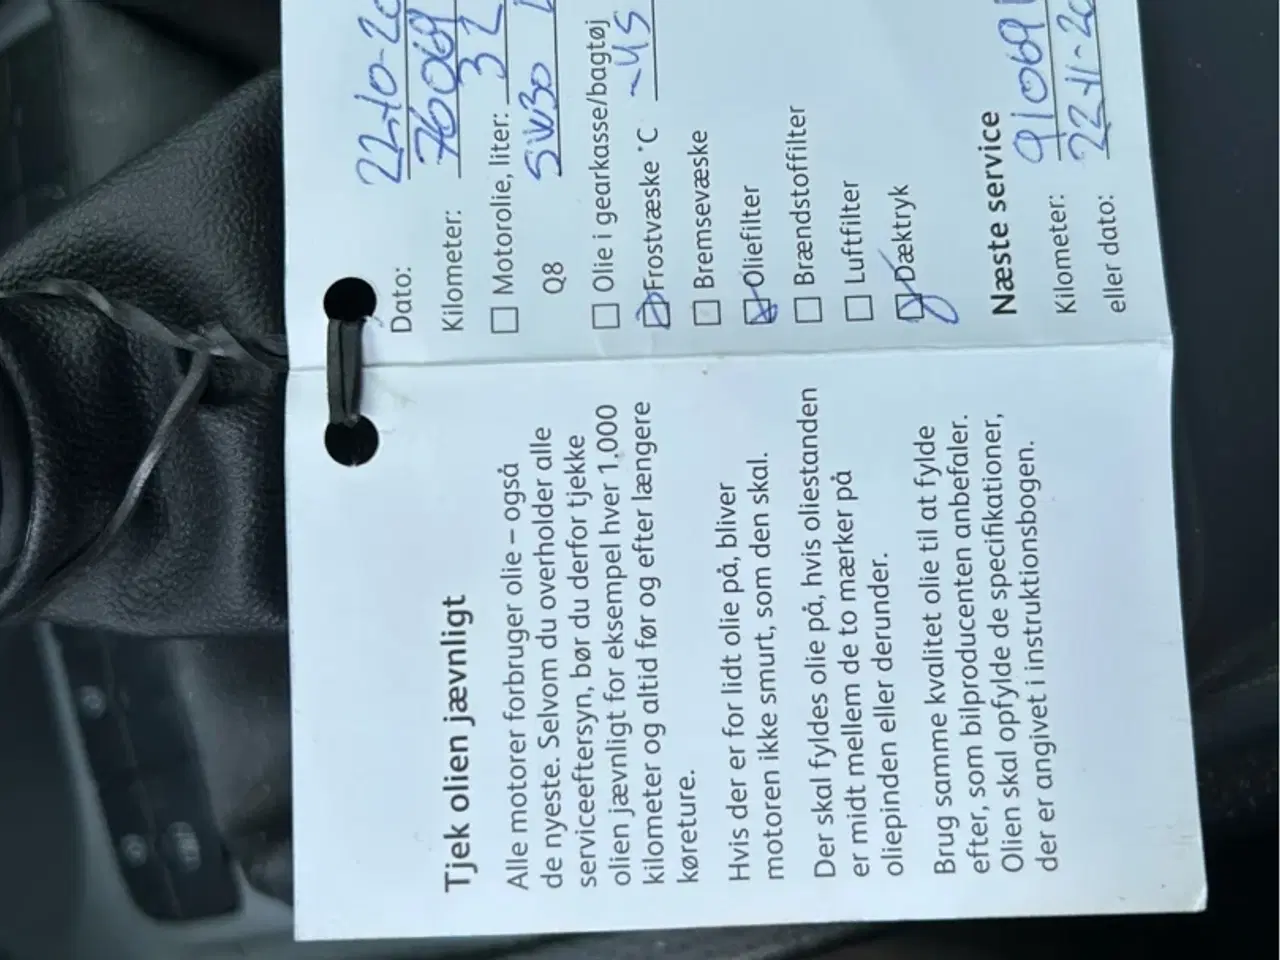 Tjek olien jævnligt
Alle motorer forbruger olie – også
de nyeste. Selvom du overholder alle
serviceeftersyn, bør du derfor tjekke
olien jævnligt for eksempel hver 1.000
kilometer og altid før og efter længere
køreture.
Hvis der er for lidt olie på, bliver
motoren ikke smurt, som den skal.
Der skal fyldes olie på, hvis oliestanden
er midt mellem de to mærker på
oliepinden eller derunder.
Brug samme kvalitet olie til at fylde
efter, som bilproducenten anbefaler.
Olien skal opfylde de specifikationer,
der er angivet i instruktionsbogen.
Dato:
Kilometer: 76069
Motorolie, liter: 3
Q8 5W30
Olie i gearkasse/bagtøj
Frostvæske °C -45
Bremsevæske
Oliefilter
Brændstoffilter
Luftfilter
Dæktryk
Næste service
Kilometer: 91069
eller dato: